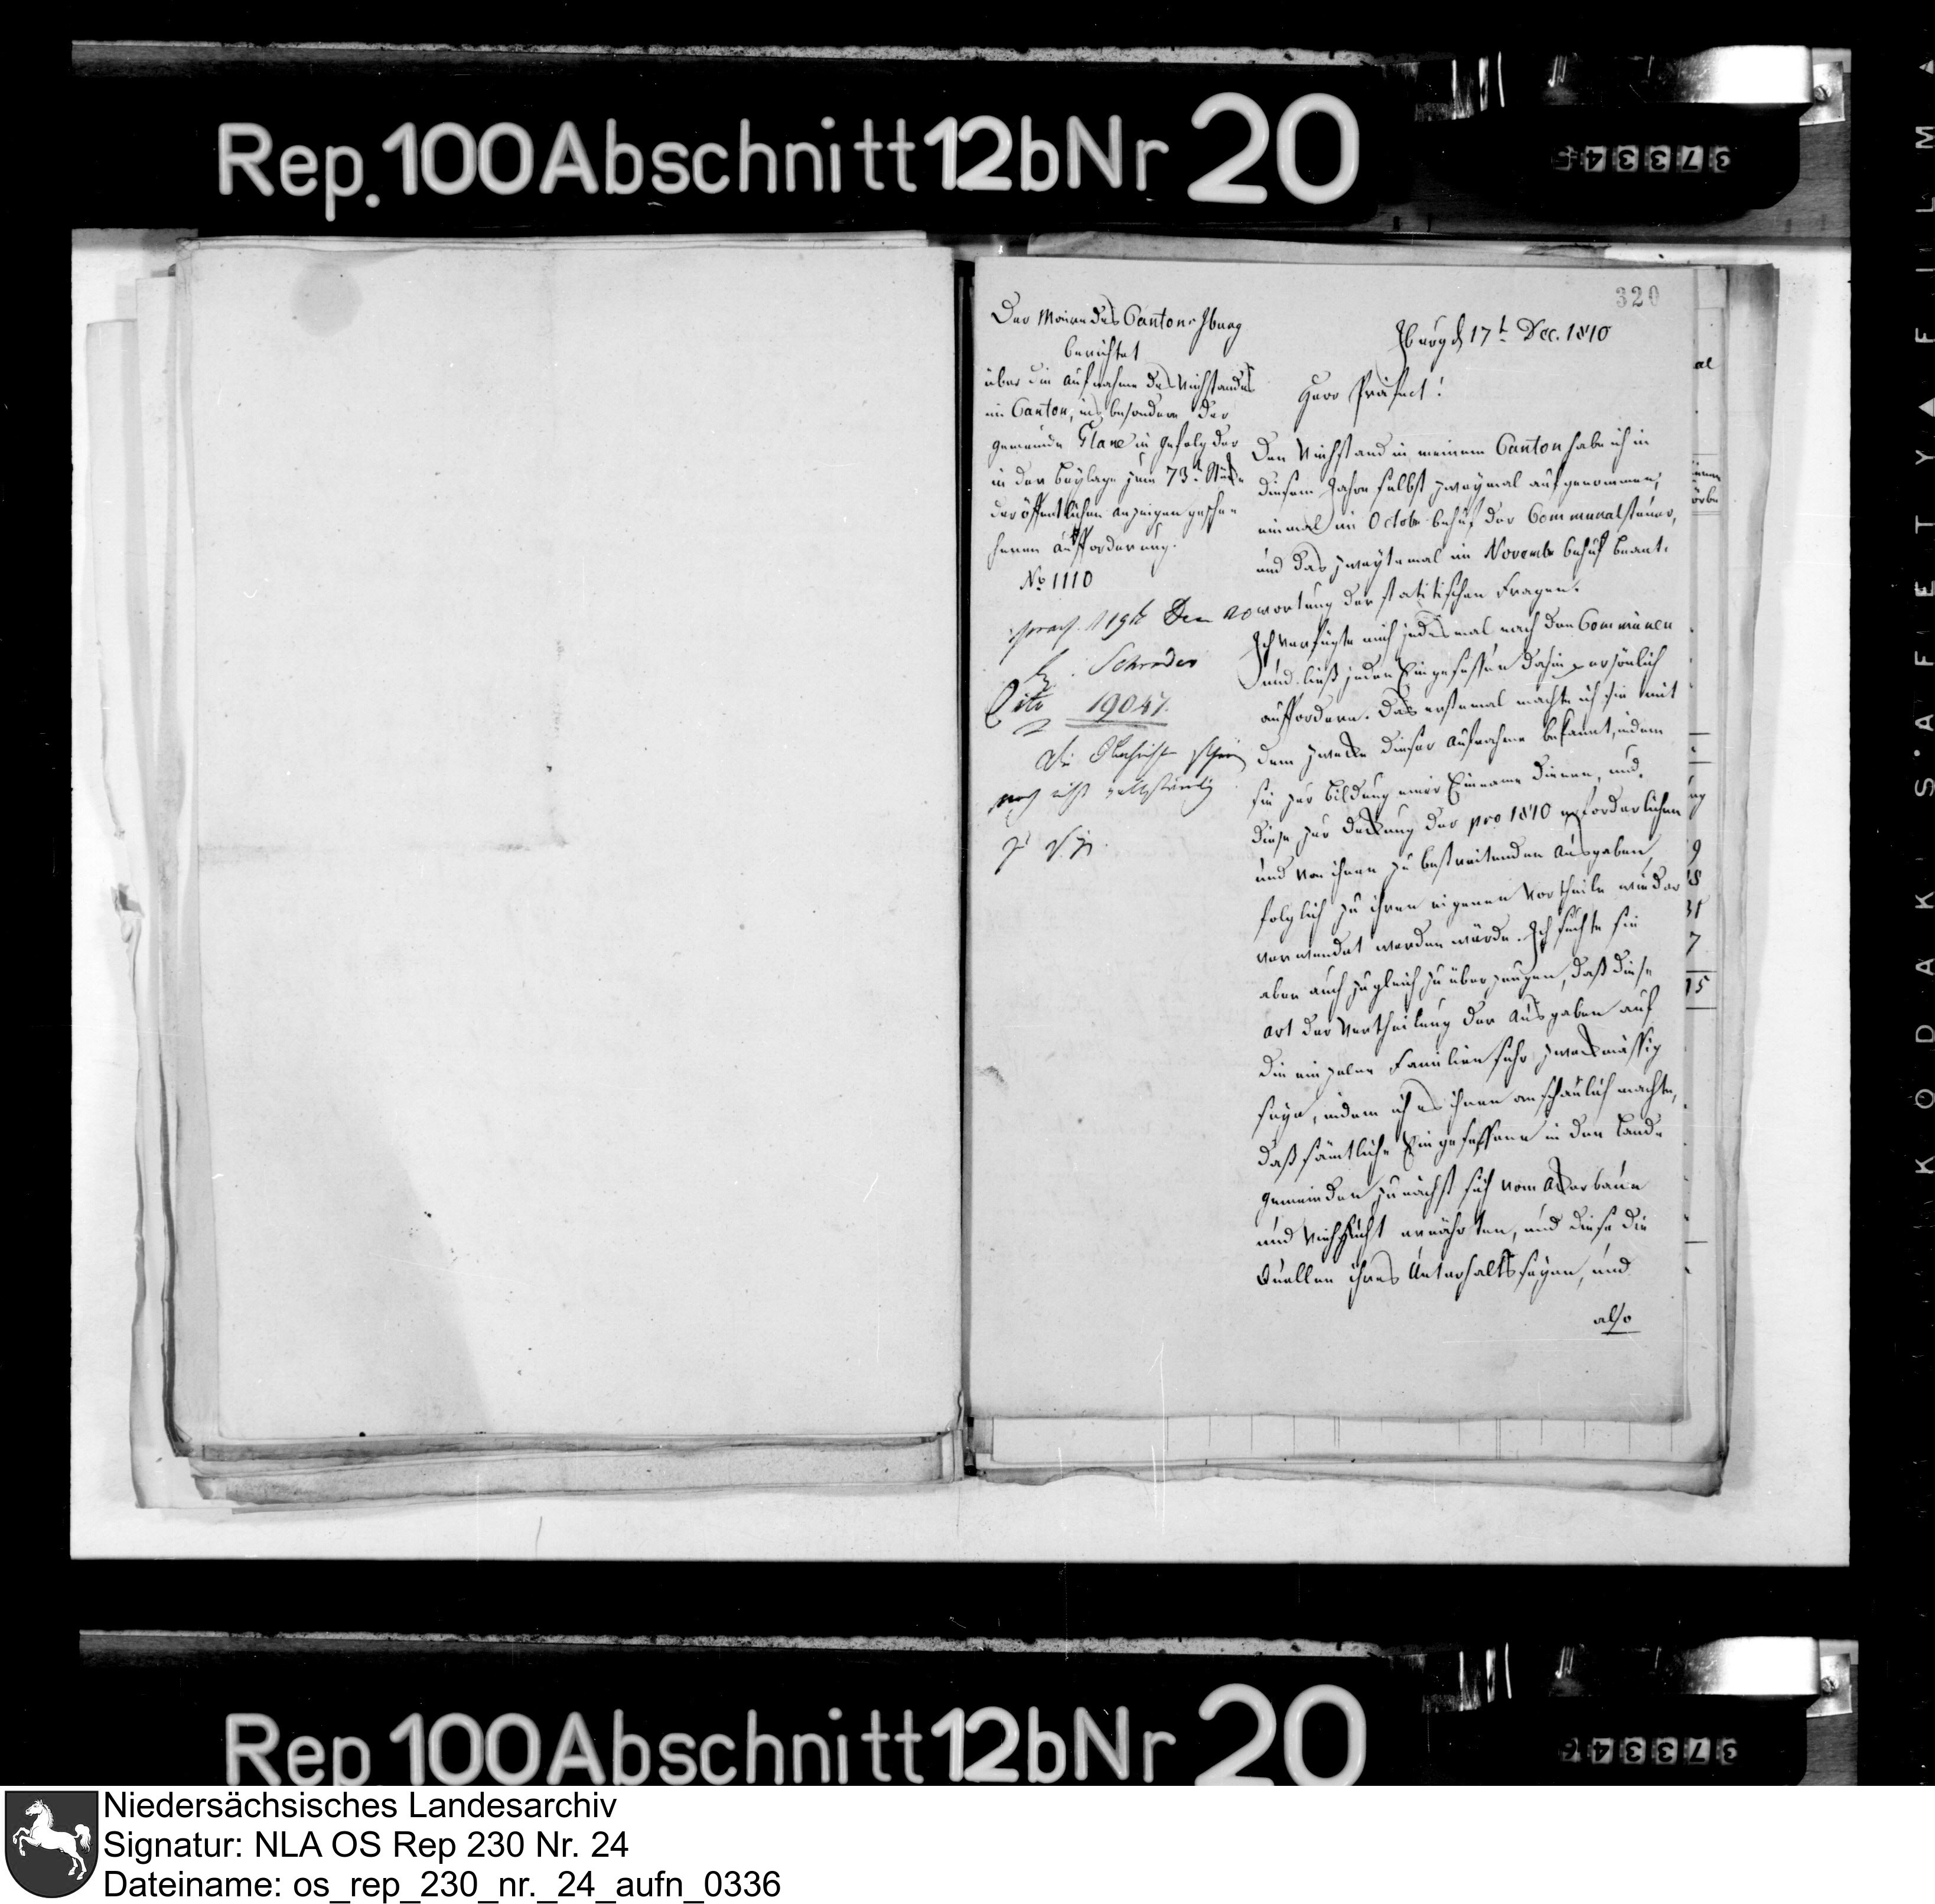 Rep. 100 Abschnitt 12b Nr 20
37334
320
Der Maire des Cantons Iburg
berichtet
über die Aufnahme des Viehstandes
im Canton, ins besondere der
Gemeinde Glane in Gefolg der
in der Beylage zum 73t. Stück
der öffentlichen Anzeigen gesche-
henen Aufforderung.
No. 1110
Schrader
Cito 19047.
Die Übersicht
noch nicht vollständig
zu
Iburg d 17t Dec. 1810
Herr Präfect!
Den Viehstand in meinem Canton habe ich in
diesem Jahre selbst zweymal aufgenommen,
einmal im Octobr behuf der Communalsteuer,
und das zweytemal im Novembr behuf Beant-
wortung der statitischen Fragen.
Ich verfügte mich jedesmal nach den Communen
und ließ jeden Eingesessen dahin persönlich
auffordern. Das erstemal machte ich sie mit
dem Zwecke dieser Aufnahme bekannt, indem
sie zur Bildung einer Einname dienen, und
diese zur Deckung der pro 1810 erforderlichen
und von ihnen zu bestreitenden Ausgaben,
folglich zu ihren eigenen Vortheile wieder
verwendet werden würde. Ich suchte sie
aber auch zugleich zu überzeugen, daß diese
Art der Vertheilung der Ausgaben auf
die einzelne Familien sehr zweckmässig
seye, indem ich es ihnen anschaulich machte,
daß sämtliche Eingesessene in den Land-
gemeinden zunächst sich vom Ackerbaue
und Viehzucht ernährten, und diese die
Quellen ihres Unterhalts seyen, und
also
al
9
18
31
7
15
KODAK SAFETY FILM
Rep 100 Abschnitt 12b Nr 20
37334
Niedersächsisches Landesarchiv
Signatur: NLA OS Rep 230 Nr. 24
Dateiname: os_rep_230_nr._24_aufn_0336